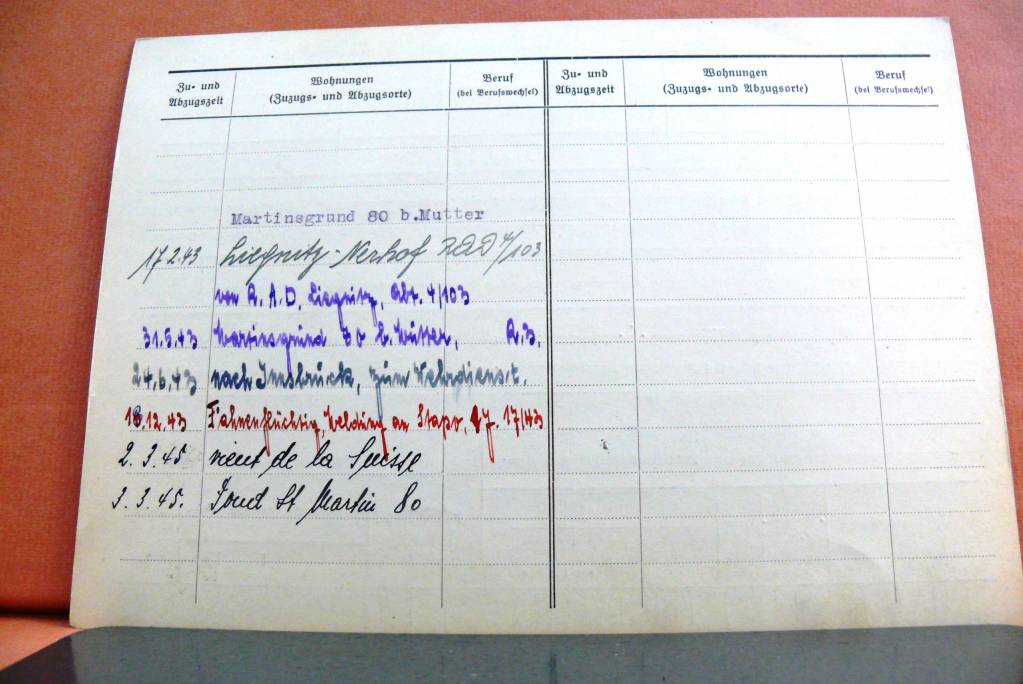 Zu- und Abzugszeit
Wohnungen (Zuzugs- und Abzugsorte)
Beruf (bei Berufswechsel)
Zu- und Abzugszeit
Wohnungen (Zuzugs- und Abzugsorte)
Beruf (bei Berufswechsel)
Martinsgrund 80 b.Mutter
17.2.43 Liegnitz- RAD 4/103
von R.A.D. Liegnitz, Abt. 4/103
31.5.43 Martinsgrund 80 b. Mutter,
24.6.43 nach Insbruck, zum Wehrdienst.
12.43 Fahnenflüchtig, Meldung an Stapo,
2.3.45 vient de la Suisse
3.3.45. Fond St Martin 80